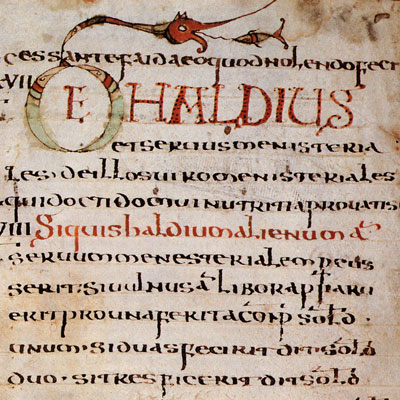 cessante faida eo quod nolendo fect
VII DE HALDIUS
et seruus menisteria
les de illos uiro menisteriales
qui docti domui nutriti aprouatis
VIII Si quis haldium alienum a
seruum menesterialem
serit: si uulnus a libor
erit pro una ferita conp sold
unum · si duas fecirit dit sold
duo · si tres ficerit dit sold